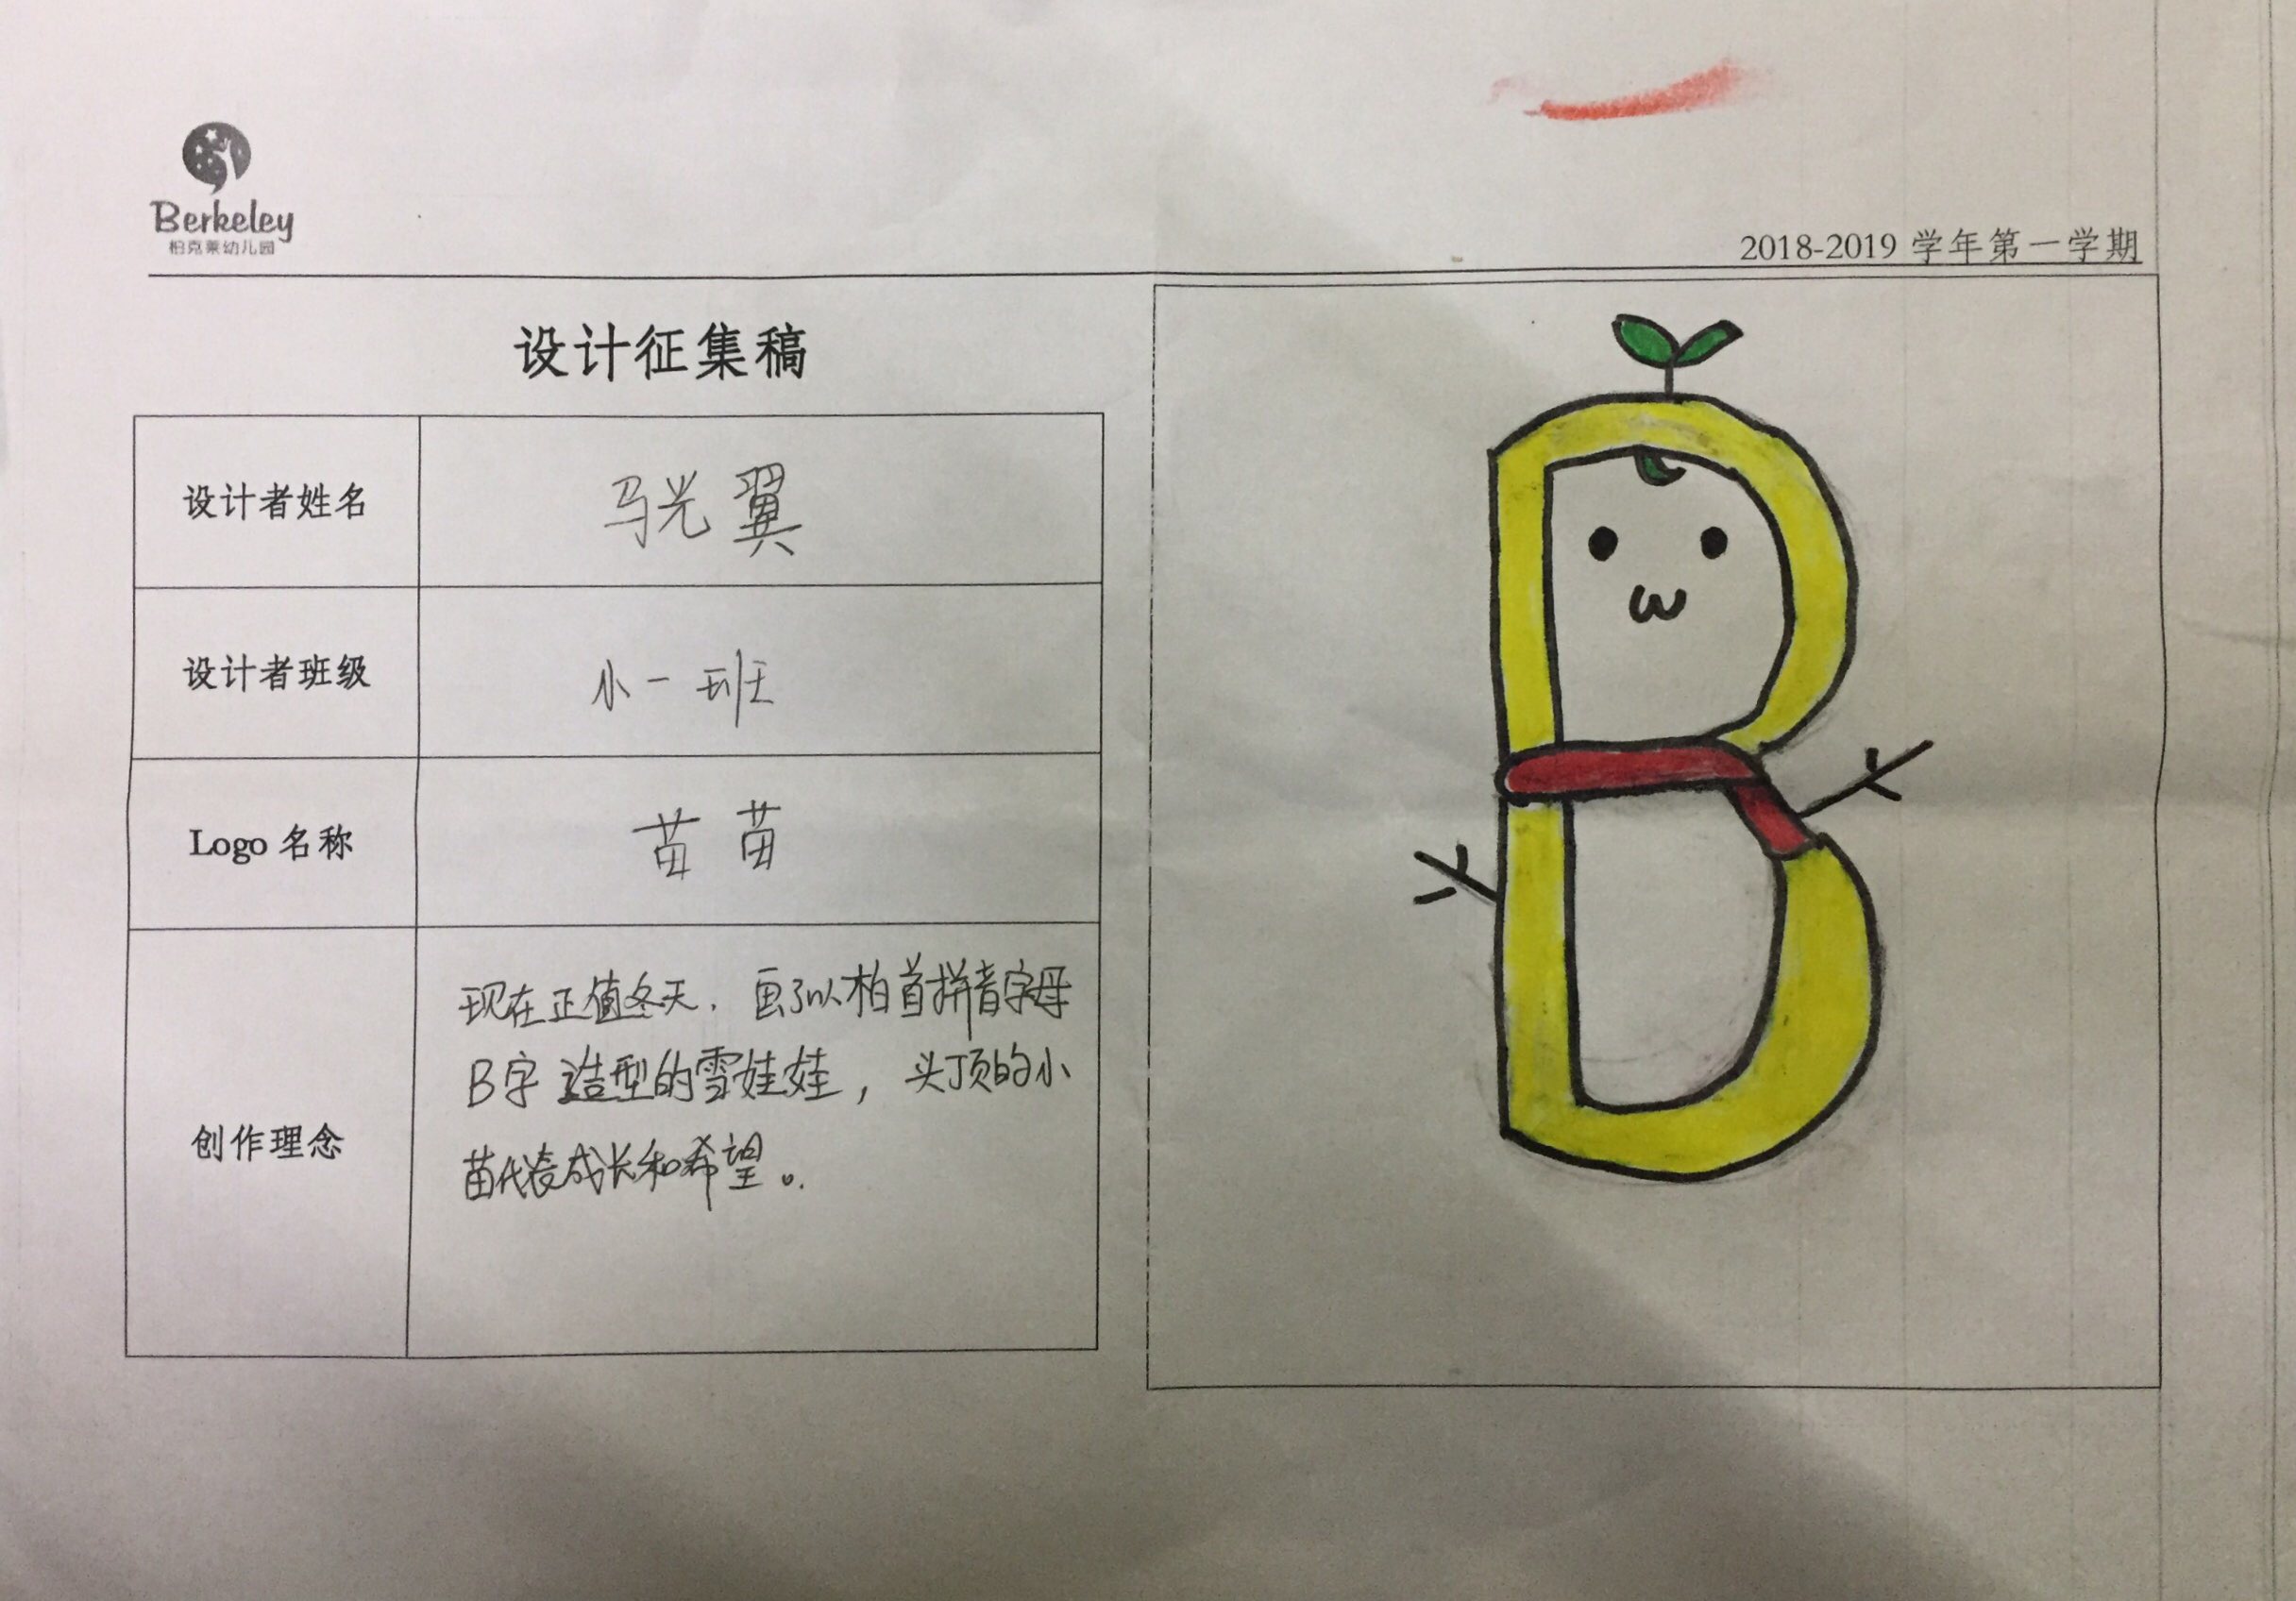 Berkeley
柏克莱幼儿园
2018-2019 学年第一学期
设计征集稿
设计者姓名
马光翼
设计者班级
小一班
Logo 名称
苗苗
创作理念
现在正值冬天，画了以柏首拼音字母
B字造型的雪娃娃，头顶的小
苗代表成长和希望。